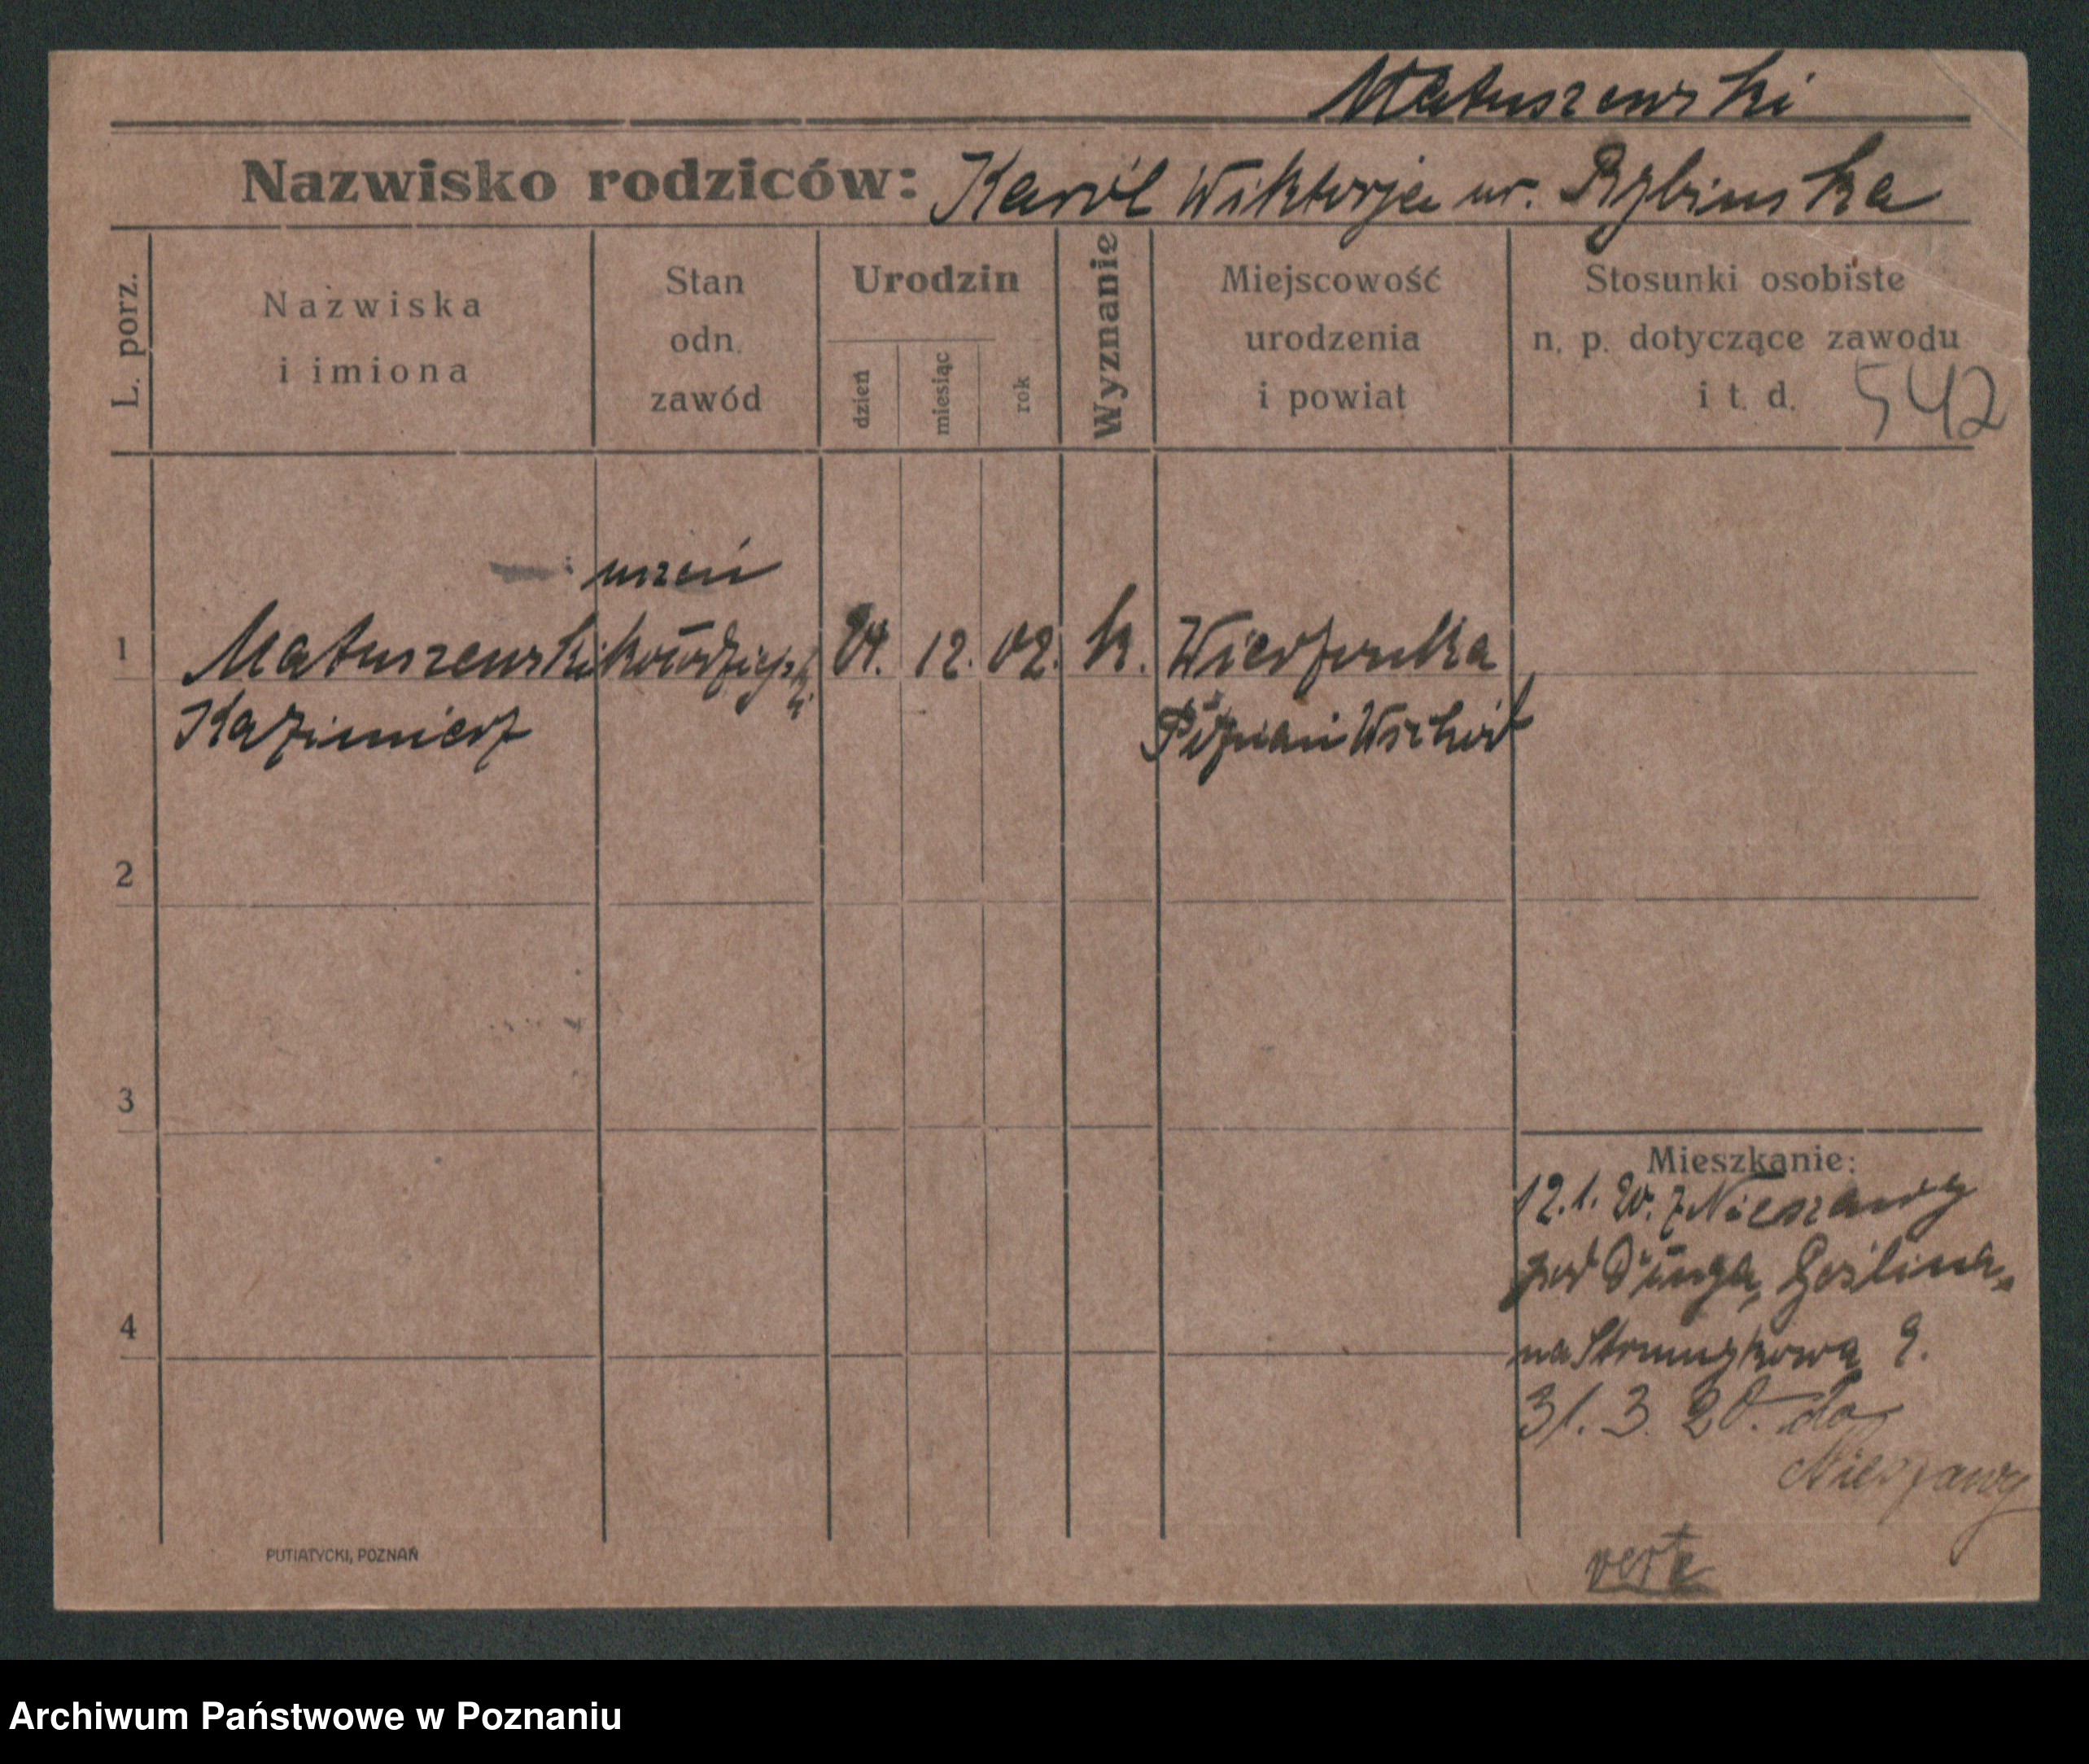 Matuszewski
Nazwisko rodziców: Karól Wiktorja ur. Rybinska
L. porz.
Nazwiska
i imiona
Stan
odn.
zawód
Urodzin
dzień
miesiąc
rok
Wyznanie
Miejscowość
urodzenia
i powiat
Stosunki osobiste
n. p. dotyczące zawodu
i t. d. 542
uczeń
1 Matuszewski kołodziejski 12. 02. k. Wierzonka
Kazimierz Poznań Wschód
2
3
4
Mieszkanie:
12. 1. 20. z Nieszawy
pod Długą Gośliną,
na Strumykową 9.
31. 3. 20. do
Nieszawy
verte
PUTIATYCKI, POZNAŃ
Archiwum Państwowe w Poznaniu